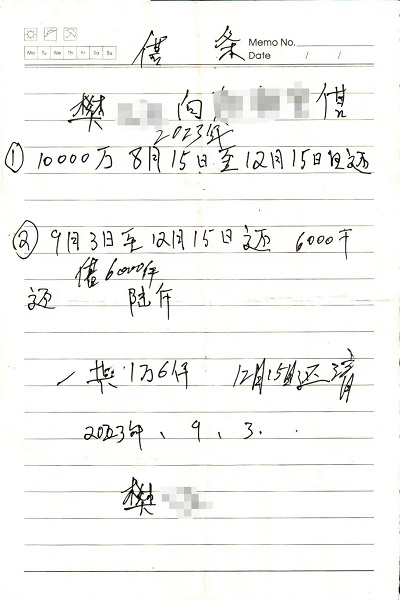 Memo No.
Mo Tu We Th Fr Sa Su
Date / /
借条
樊 向 借
2023年
① 10000万 8月15日至12月15日还
② 9月3日至12月15日还 6000千
借6000仟
还 陆仟
一共1万6仟 12月15日还清
2023年、9、3.
樊